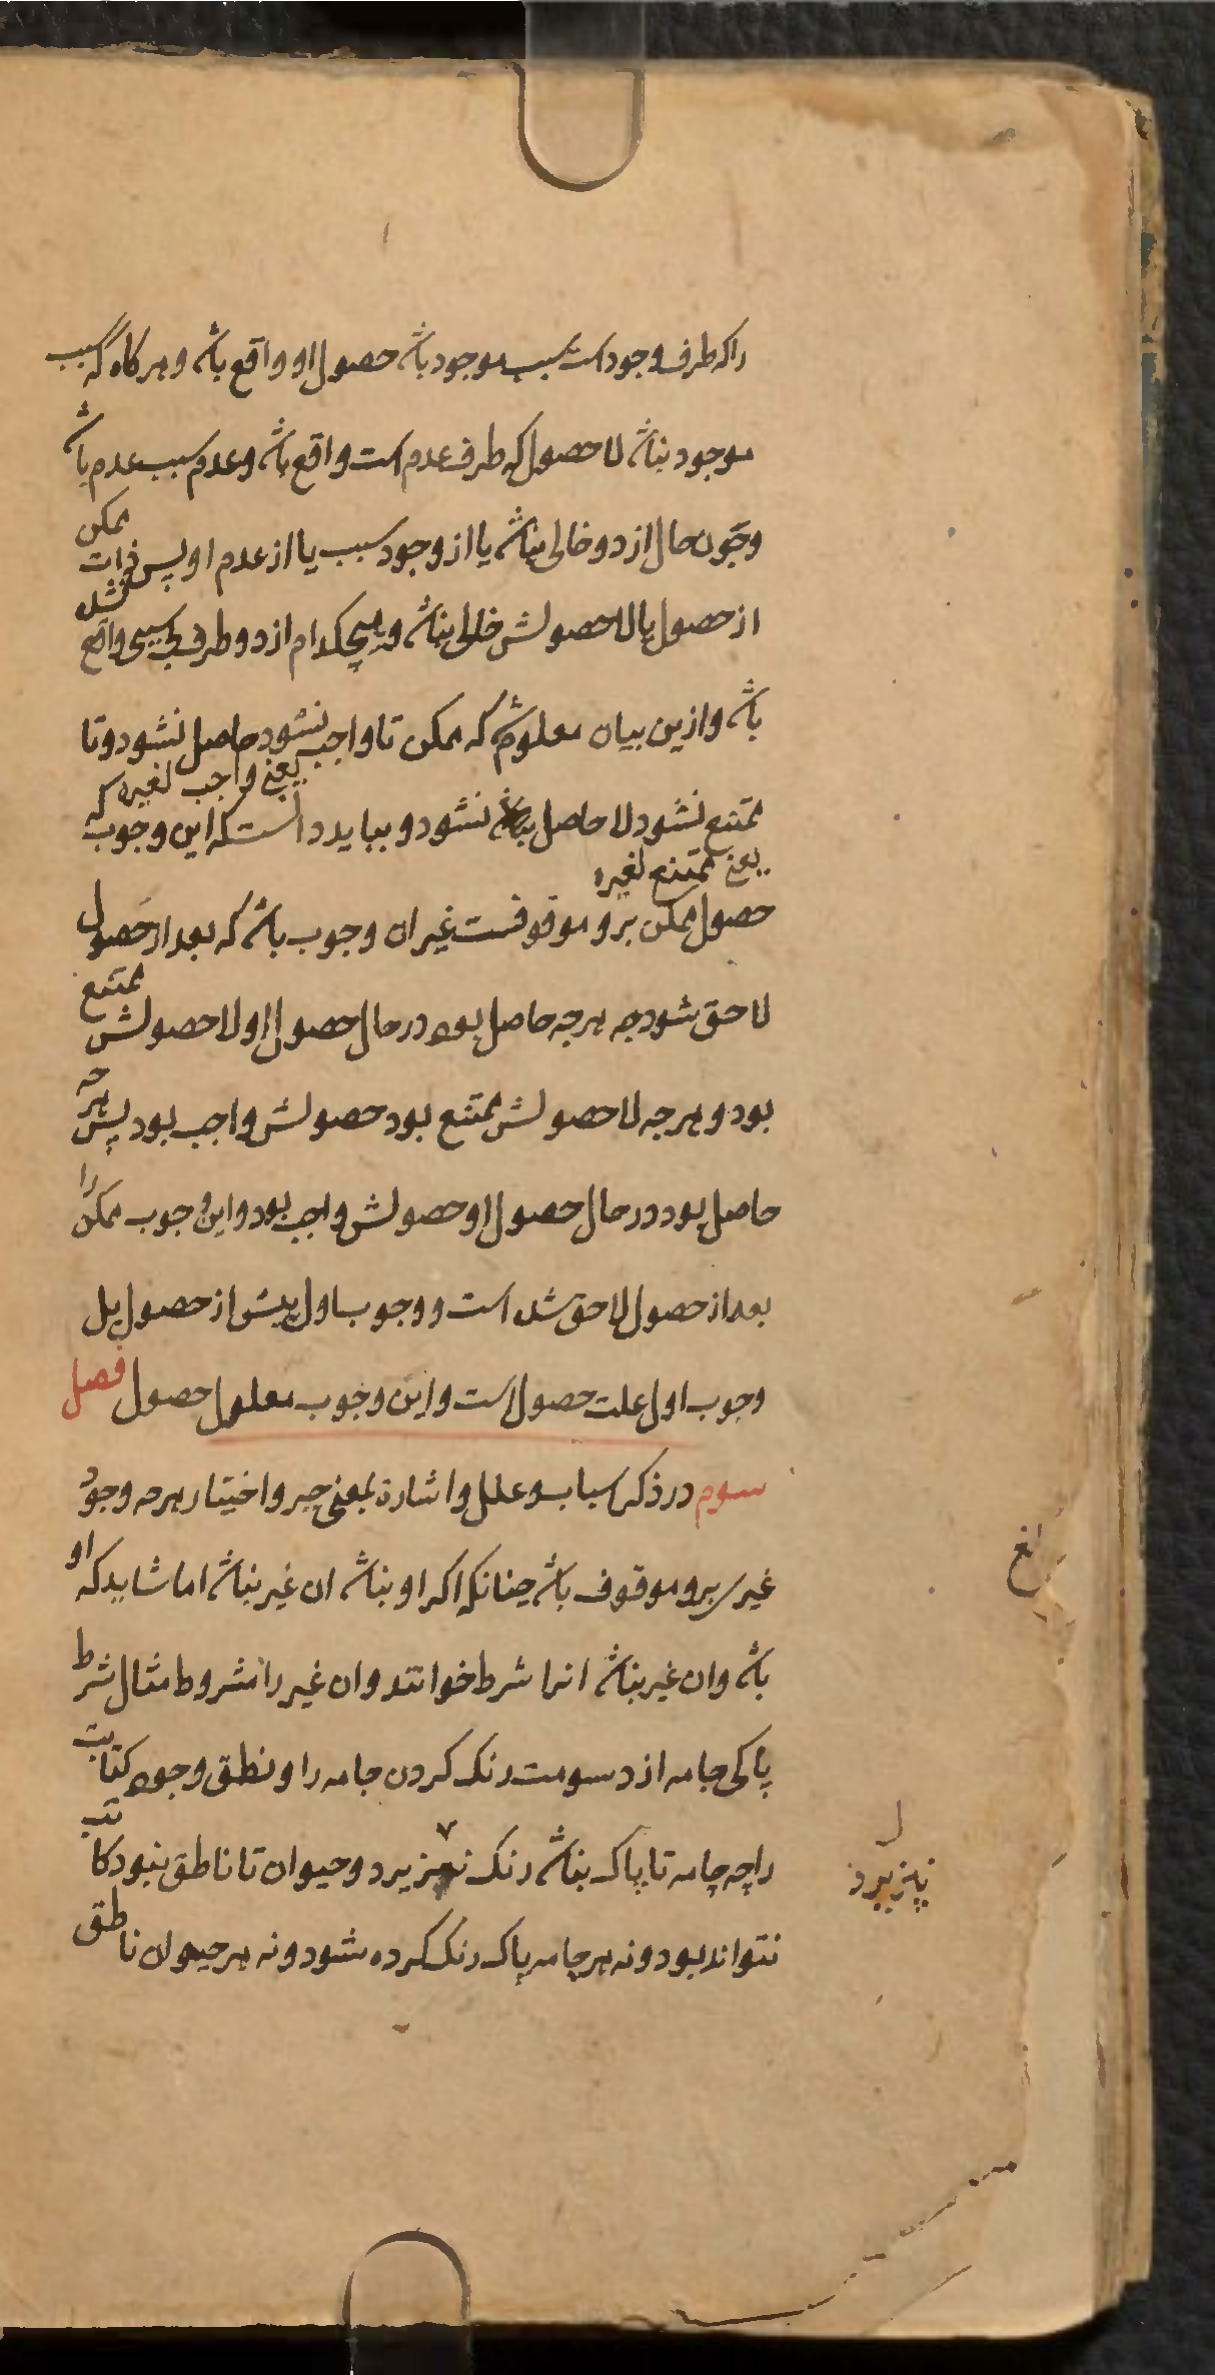 را که طرف وجود است سبب موجود باشد حصول او واقع باشد و هر کاه که سبب
موجود نباشد لا حصول که طرف عدم است واقع باشد و عدم سبب سبب عدم باشد
و چون حال از دو خالی نباشد یا از وجود سبب یا از عدم او پس ذات ممکن
از حصول یا لا حصولش خالی نباشد و هیچکدام از دو طرف بی سببی واقع نشده
باشد و ازین بیان معلوم شد که ممکن تا واجب نشود حاصل نشود و تا
یعنی واجب لغیره
ممتنع نشود لا حاصل نشود و بباید دانست که این وجوب که
یعنی ممتنع لغیره
حصول ممکن برو موقوفست غیر ان وجوب باشد که بعد از حصول
لاحق شود چه هرچه حاصل بود در حال حصول او لا حصولش ممتنع
بود و هرچه لا حصولش ممتنع بود حصولش واجب بود پس هر چه
حاصل بود در حال حصول او حصولش واجب بود و این وجوب ممکن را
بعد از حصول لاحق شده است و وجوب اول پیش از حصول بل
وجوب اول علت حصول است و این وجوب معلول حصول فصل
سوم در ذکر اسباب و علل و اشارة بمعنی جبر و اختیار هرچه وجود
غیری برو موقوف باشد چنانکه اکر او نباشد ان غیر نباشد اما شاید که او
باشد وان غیر نباشد انرا شرط خوانند وان غیر را مشروط مثال شرط
پاکی جامه از دسومت رنک کردن جامه را و نطق وجود کتابت
را چه جامه تا پاک نباشد رنک نپزیرد و حیوان تا ناطق نبود کاتب
نپزیرد
نتواند بود و نه هر جامه پاک رنک کرده شود و نه هر حیوان ناطق